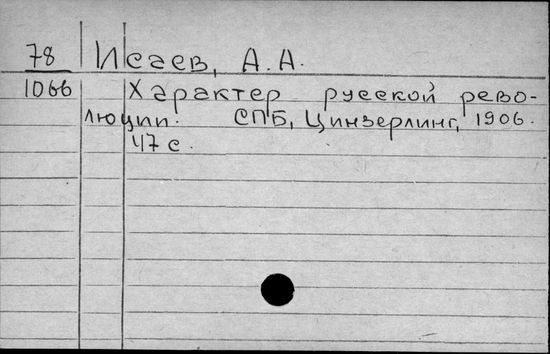 78 Исаев, А.А.
1066 Характер русской рево-
люции. СПБ, Цинзерлинг, 1906.
47 с.